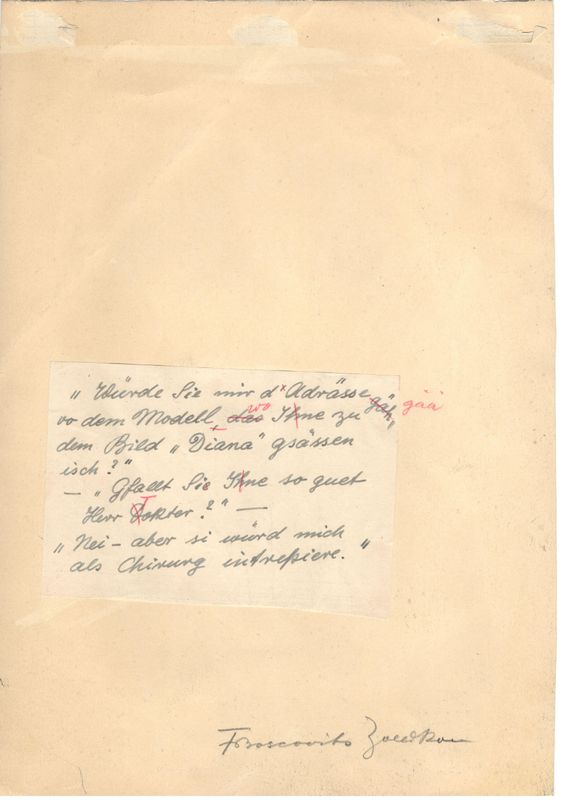 „ Würde Sie mir d' Adrässe gäh, gää
vo dem Modell, wo Ihne zu
dem Bild „Diana" gsässen
isch?"
— „Gfallt Sie Ihne so guet
Herr Dokter?" —
„Nei – aber si würd mich
als Chirurg intreßiere."
FBoscovits Zollikon